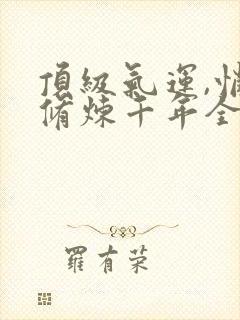 頂級氣運,悄
脩煉千年全
羅有荣